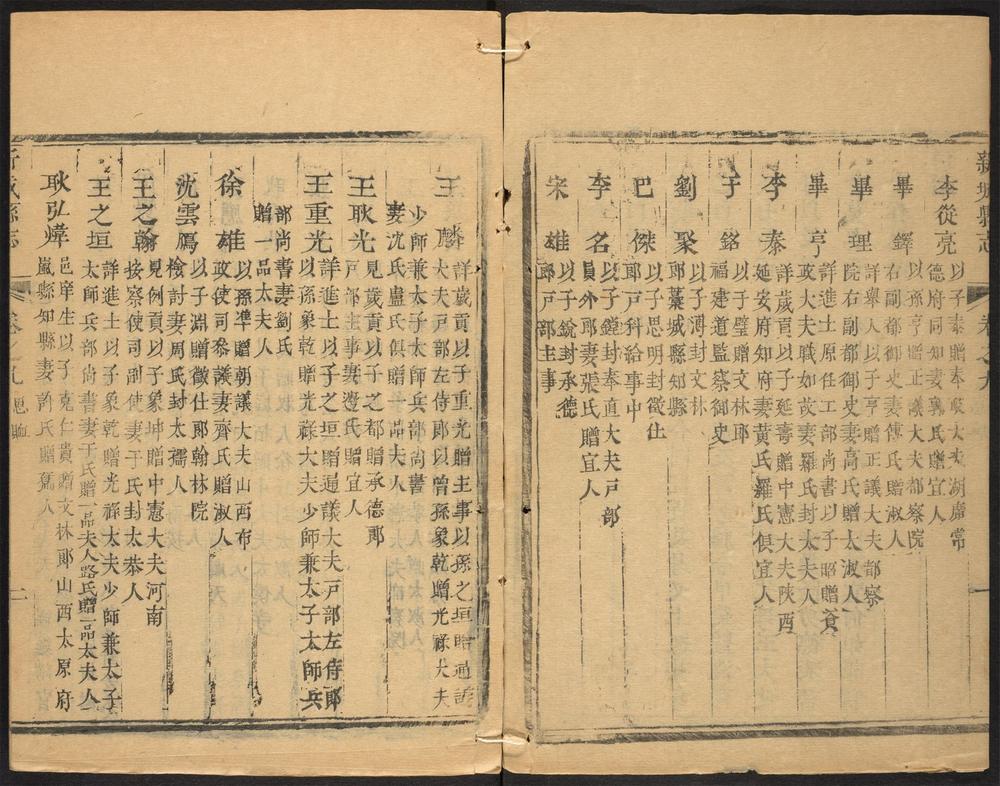 新城縣志
卷之九
一
李從亮
以子泰贈奉政大夫湖廣常
德府同知妻冀氏贈宜人
畢鐸
以孫亨贈正議大夫都察院
右副都御史妻傅氏贈淑人
畢理
詳舉人以子亨贈正議大夫都察
院右副都御史妻高氏贈太淑人
畢亨
詳進士原任工部尚書以子昭贈
政大夫職如故妻羅氏封太夫人
李泰
詳歲貢以子延壽贈中憲大夫陝西
延安府知府妻黃氏羅氏俱宜人
于銘
以子璧贈文林郎
福建道監察御史
劉聚
以子溥封文林
郎藁城縣知縣
巴傑
以子思明封徵仕
郎戶科給事中
李名
以子鏜封奉直大夫戶部
員外郎妻張氏贈宜人
宋雄
以子銳封承德
郎戶部主事
王麟
詳歲貢以子重光贈主事以孫之垣贈通議
大夫戶部左侍郎以曾孫象乾贈光祿大夫
少師兼太子太師兵部尚書
妻沈氏盧氏俱贈一品夫人
王耿光
見歲貢以子之都贈承德郎
戶部主事妻邊氏贈宜人
王重光
詳進士以子之垣贈通議大夫戶部左侍郎
以孫象乾贈光祿大夫少師兼太子太師兵
部尚書妻劉氏
贈一品太夫人
徐雄
以孫準贈朝議大夫山西布
政使司參議妻齊氏贈淑人
沈雲鴈
以子淵贈徵仕郎翰林院
檢討妻周氏封太孺人
王之翰
見例貢以子象坤贈中憲大夫河南
按察使司副使妻于氏封太恭人
王之垣
詳進士以子象乾贈光祿大夫少師兼太子
太師兵部尚書妻于氏贈一品夫人路氏贈一品太夫人
耿弘煒
邑庠生以子克仁貴贈文林郎山西太原府
嵐縣知縣妻許氏贈孺人
新城縣志
卷之九
二